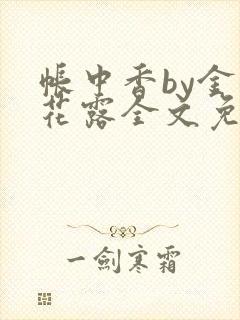 帳中香by金
花露全文免
一劍寒霜